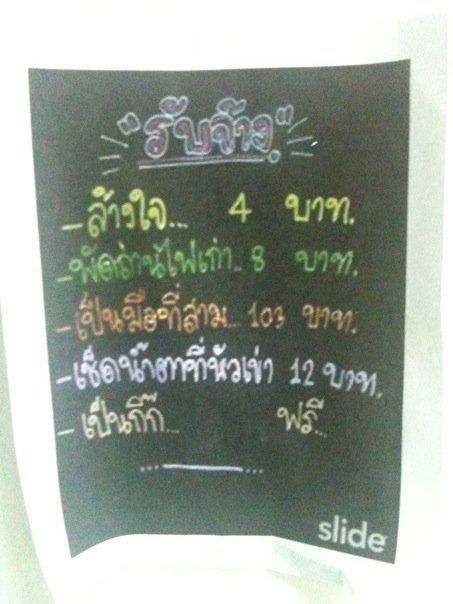 "รับจ้าง"
- ล้างใจ... 4 บาท.
- พัดถ่านไฟเก่า.. 8 บาท.
- เป็นมือที่สาม... 103 บาท.
- เช็ดน้ำตาที่หัวเข่า 12 บาท.
- เป็นกิ๊ก... ฟรี...
slide